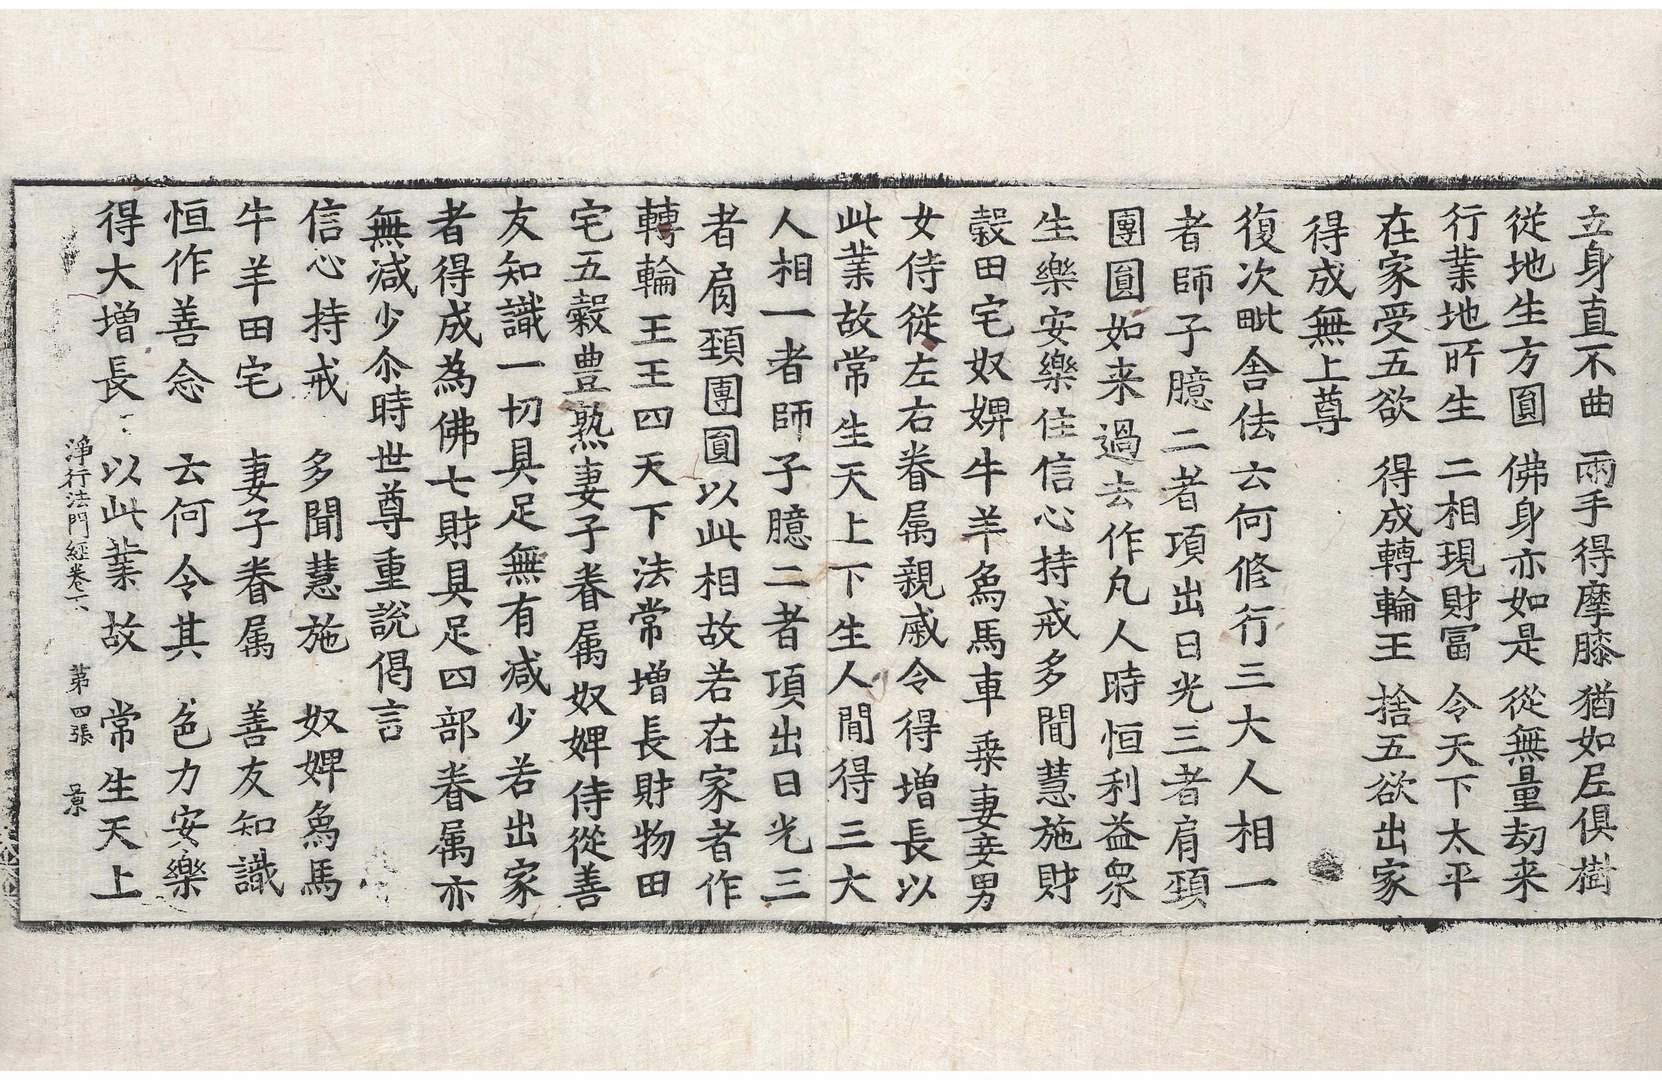 立身直不曲　兩手得摩膝　猶如尼俱樹
從地生方圓　佛身亦如是　從無量劫来
行業地所生　二相現財富　令天下太平
在家受五欲　得成轉輪王　捨五欲出家
得成無上尊
復次毗舍佉云何修行三大人相一
者師子臆二者項出日光三者肩頚
團圓如来過去作凡人時恒利益衆
生樂安樂住信心持戒多聞慧施財
穀田宅奴婢牛羊象馬車乗妻妾男
女侍從左右眷属親戚令得增長以
此業故常生天上下生人間得三大
人相一者師子臆二者項出日光三
者肩頚團圓以此相故若在家者作
轉輪王王四天下法常增長財物田
宅五穀豊熟妻子眷属奴婢侍從善
友知識一切具足無有減少若出家
者得成為佛七財具足四部眷属亦
無減少尒時世尊重説偈言
信心持戒　多聞慧施　奴婢象馬
牛羊田宅　妻子眷属　善友知識
恒作善念　云何令其　色力安樂
得大增長　以此業故　常生天上
淨行法門經卷下　第四張　景